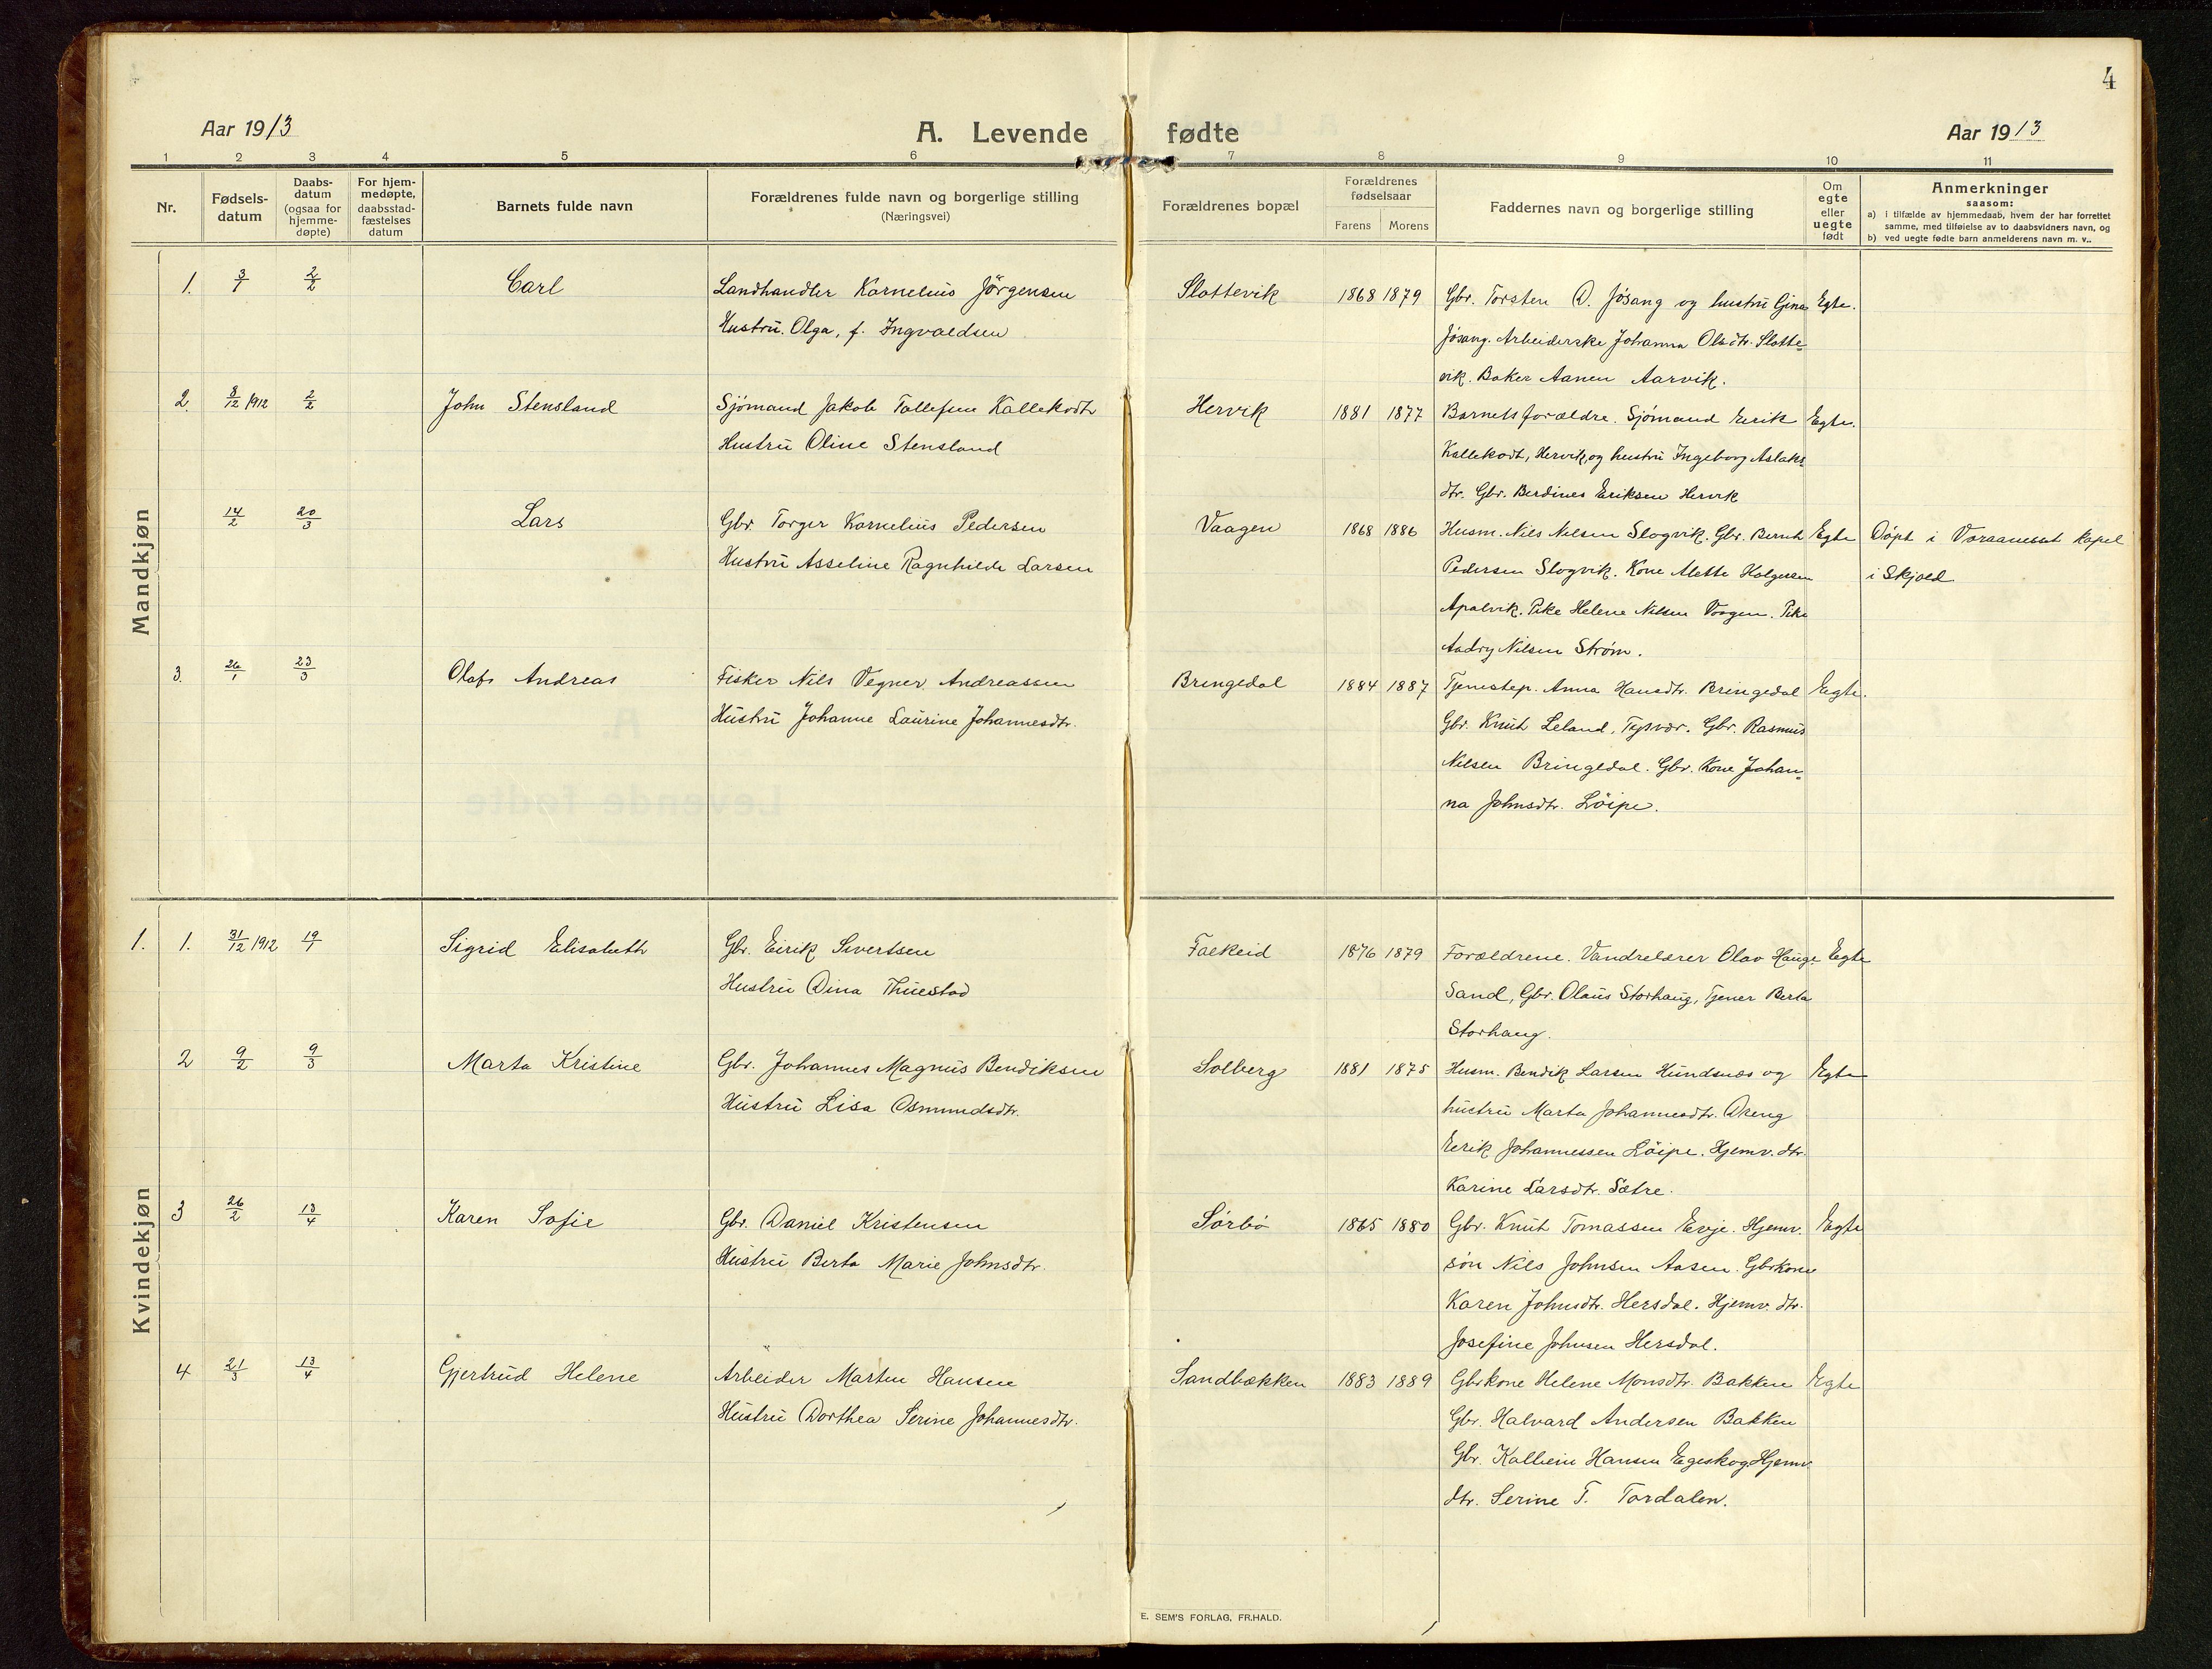 4
Aar 1913
A. Levende fødte
Aar 1913
1 2 3 4 5 6 7 8 9 10 11
Nr.
Fødsels-
datum
Daabs-
datum
(ogsaa for
hjemme-
døpte)
For hjem-
medøpte,
daabsstad-
fæstelses
datum
Barnets fulde navn
Forældrenes fulde navn og borgerlige stilling
(Næringsvei)
Forældrenes bopæl
Forældrenes
fødselsaar
Farens Morens
Faddernes navn og borgerlige stilling
Om
egte
eller
uegte
født
Anmerkninger
saasom:
a) i tilfælde av hjemmedaab, hvem der har forrettet
samme, med tilføielse av to daabsvidners navn, og
b) ved uegte fødte barn anmelderens navn m. v..
Mandkjøn
1. 3/1 2/2 Carl Landhandler Kornelius Jörgensen Slottevik 1868 1879 Gbr. Torsten D. Jösang og hustru Gina Egte.
Hustru Olga, f. Ingvaldsen Jösang. Arbeiderske Johanna Olsdtr. Slotte-
vik. Baker Aanen Aarvik.
2. 8/12 1912 2/2 John Stensland Sjömand Jakob Tollefsen Kallekodt Hervik 1881 1877 Barnets forældre. Sjömand Eerik Egte.
Hustru Oline Stensland Kallekodt, Hervik, og hustru Ingeborg Aslaks
dtr. Gbr. Berdines Eriksen Hervik
14/2 20/3 Lars Gbr. Torger Kornelius Pedersen Vaagen 1868 1886 Husm. Nils Nilsen Slogvik. Gbr. Bernt Egte Döpt i Voraneset kapel
Hustru Asseline Ragnhilde Larsen Pedersen Slogvik. Kone Alette Holgersen i Skjold
Apalvik. Pike Helene Nilsen Vaagen. Pike
Nilsen Strøm.
3. 26/1 23/3 Olaf Andreas Fisker Nils Vegner Andreassen Bringedal 1884 1887 Tjenestep. Anna Hansdtr. Bringedal Egte.
Hustru Johanne Laurine Johannesdtr. Gbr. Knut Leland, Tysvær. Gbr. Rasmus
Nilsen Bringedal. Gbr. Kone Johan-
na Johnsdtr. Löipe.
Kvindekjøn
1. 1. 31/12 1912 19/1 Sigrid Elisabeth Gbr. Eirik Sivertsen Falkeid 1876 1879 Forældrene. Vandrelærer Olav Hauge Egte
Hustru Dina Thuestad Sand, Gbr. Olaus Storhaug, Tjener Berta
Storhaug.
2 9/2 9/3 Marta Kristine Gbr. Johannes Magnus Bendiksen Solberg 1881 1875 Husm. Bendik Larsen Hundsnæs og Egte
Hustru Lisa Osmundsdtr. hustru Marta Johannesdtr. Dreng
Eerik Johannessen Löipe. Hjemv. dtr.
Karine Larsdtr. Sætre.
3 26/2 13/4 Karen Sofie Gbr. Daniel Kristensen Sörbö 1865 1880 Gbr. Knut Tomassen Evje. Hjemv. Egte
Hustru Berta Marie Johnsdtr. sön Nils Johnsen Aasen. Gbrkone
Karen Johnsdtr. Hersdal. Hjemv. dtr.
Josefine Johnsen Hersdal.
4 21/3 13/4 Gjertrud Helene Arbeider Martin Hansen Sandbækken 1883 1889 Gbrkone Helene Monsdtr. Bakken Egte
Hustru Dorthea Serine Johannesdtr. Gbr. Halvard Andersen Bakken
Gbr. Kolbein Hansen Egeskog. Hjemv.
dtr. Serine T. Tordalen.
E. SEM'S FORLAG, FR.HALD.